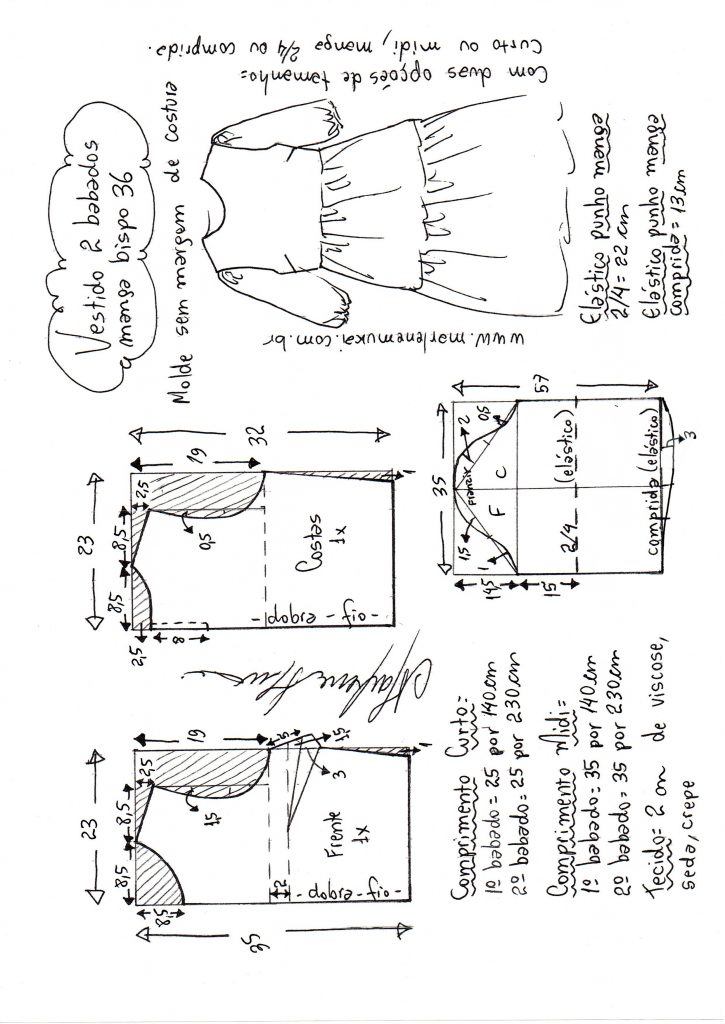 Vestido 2 babados
manga bispo 36
Molde sem margem de costura
Com duas opções de tamanho:
Curto ou midi, manga 2/4 ou comprida.
www.marlenemukai.com.br
Elástico punho manga
2/4 = 22 cm
Elástico punho manga
comprida = 13cm
23
8,5
8,5
2,5
2,5
19
32
0,5
8
Costas
1x
- dobra - fio -
1
35
57
franzir
2
0,5
1,5
1
F
C
14,5
15
2/4
(elástico)
comprida (elástico)
3
23
8,5
8,5
2,5
5,8
19
35
1,5
1,5
3
2
Frente
1x
- dobra - fio -
1
Comprimento Curto:
1º babado = 25 por 140cm
2º babado = 25 por 230cm
Comprimento Midi=
1º babado = 35 por 140cm
2º babado = 35 por 230cm
Tecido= 2 m de viscose,
seda, crepe